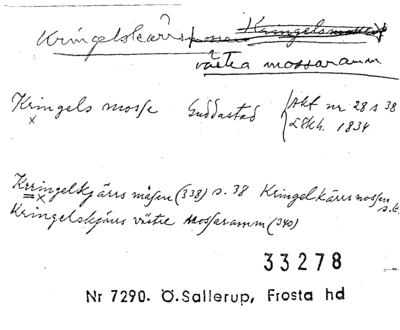 Kringelskärrs
västra mossaramm
Kringels mosse Guddastad Akt nr 28 s 38
L Skh. 1834
Krringelskjärrs måsen (338) s. 38 Kringelkärrs mossen
Kringelskjärrs västre Mossaramm (340)
33278
Nr 7290. Ö.Sallerup, Frosta hd